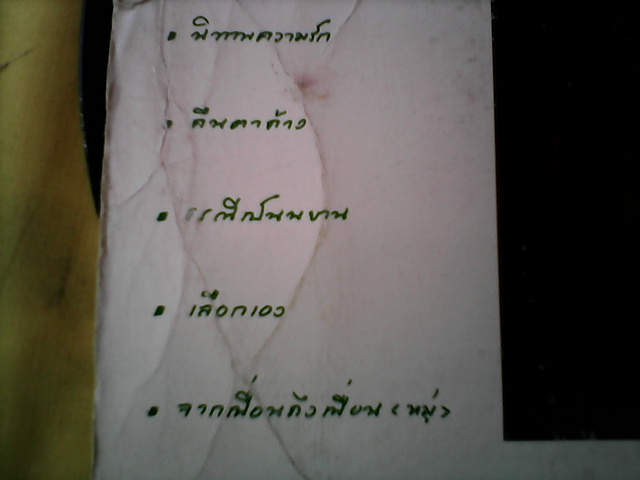 • นิทานความรัก
• ลืมตาค้าง
• ธรณีเป็นพยาน
• เลือกเอง
• จากเพื่อนถึงเพื่อน <หมู่>